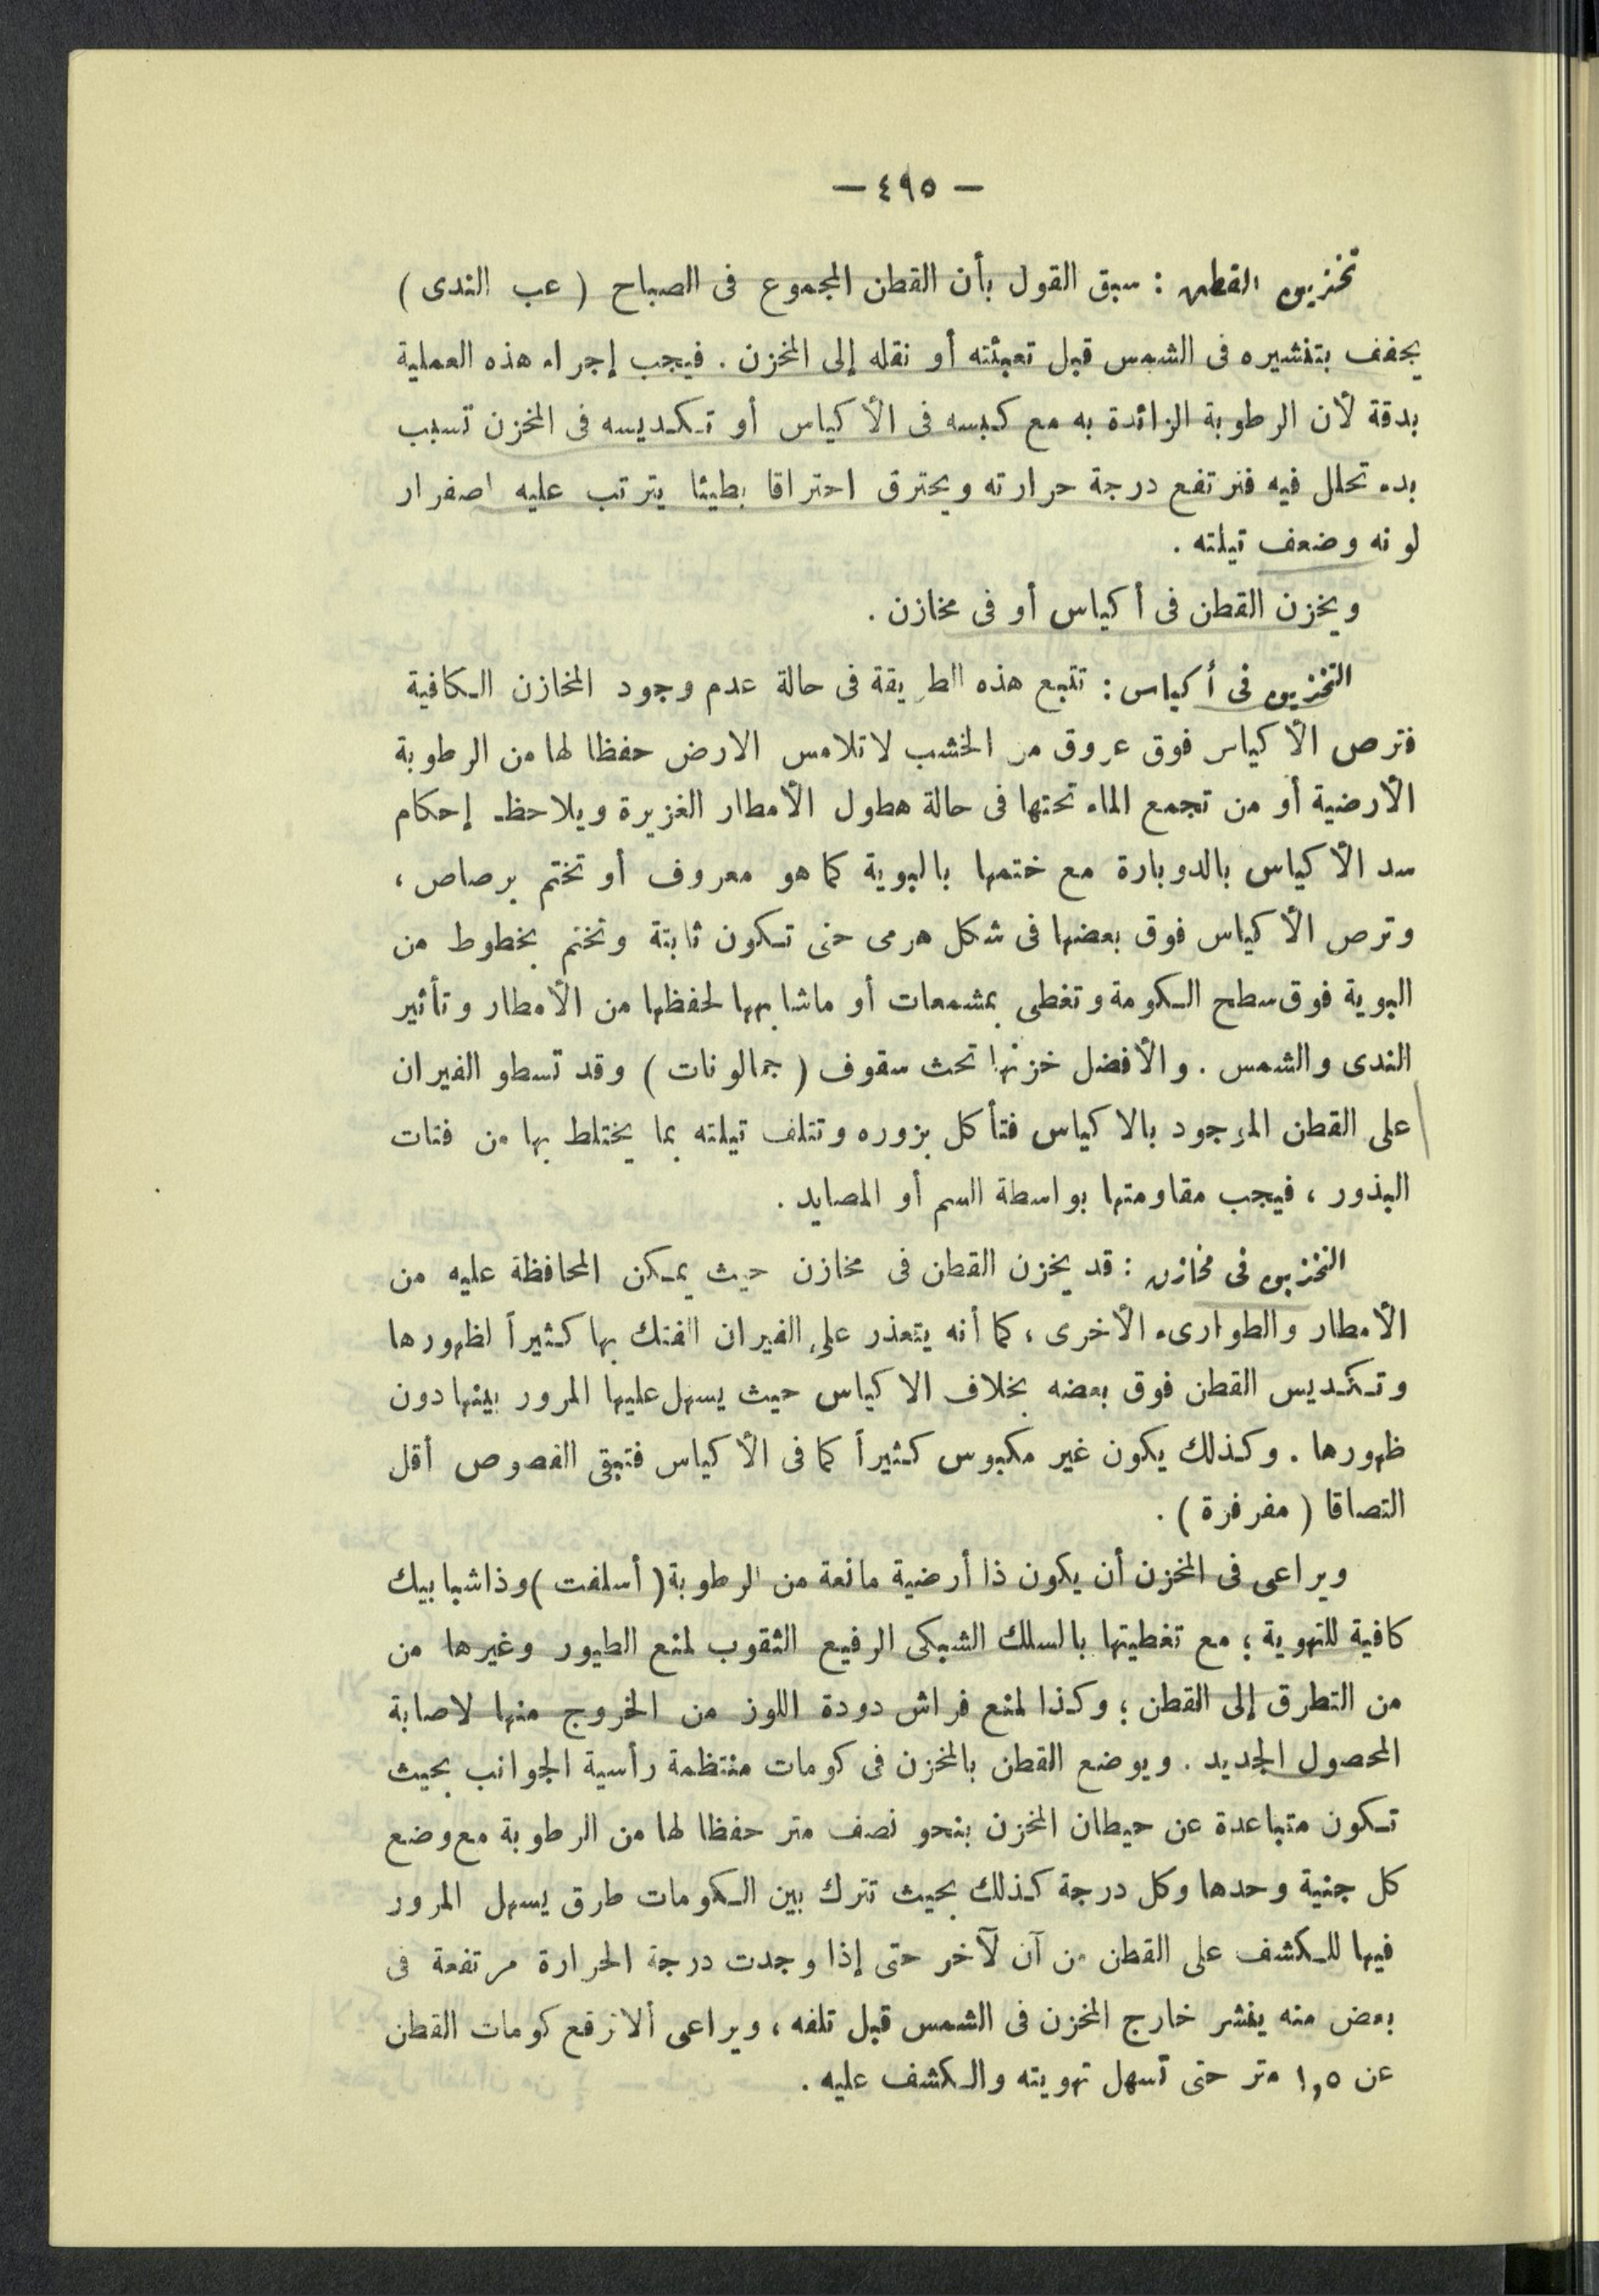 — ٤٩٥ —
تخزين القطن : سبق القول بأن القطن المجموع فى الصباح ( عب الندى )
يجفف بتنشيره فى الشمس قبل تعبئته أو نقله إلى المخزن . فيجب إجراء هذه العملية
بدقة لأن الرطوبة الزائدة به مع كبسه فى الأكياس أو تكديسه فى المخزن تسبب
بدء تحلل فيه فترتفع درجة حرارته ويحترق احتراقا بطيئا يترتب عليه اصفرار
لونه وضعف تيلته .
ويخزن القطن فى أكياس أو فى مخازن .
التخزين فى أكياس : تتبع هذه الطريقة فى حالة عدم وجود المخازن الكافية
فترص الأكياس فوق عروق من الخشب لاتلامس الارض حفظا لها من الرطوبة
الأرضية أو من تجمع الماء تحتها فى حالة هطول الأمطار الغزيرة ويلاحظ إحكام
سد الأكياس بالدوبارة مع ختمها بالبوية كما هو معروف أو تختم برصاص ،
وترص الأكياس فوق بعضها فى شكل هرمى حتى تكون ثابتة وتختم بخطوط من
البوية فوق سطح الكومة وتغطى بمشمعات أو ماشابهها لحفظها من الأمطار وتأثير
الندى والشمس . والأفضل خزنها تحث سقوف ( جمالونات ) وقد تسطو الفيران
على القطن الموجود بالاكياس فتأكل بزوره وتتلف تيلته بما يختلط بها من فتات
البذور ، فيجب مقاومتها بواسطة السم أو المصايد .
التخزين فى مخازن : قد يخزن القطن فى مخازن حيث يمكن المحافظة عليه من
الأمطار والطوارىء الأخرى ، كما أنه يتعذر على الفيران الفتك بها كثيراً لظهورها
وتكديس القطن فوق بعضه بخلاف الاكياس حيث يسهل عليها المرور بينها دون
ظهورها . وكذلك يكون غير مكبوس كثيراً كما فى الأكياس فتبقى الفصوص أقل
التصاقا ( مفرفرة ) .
ويراعى فى المخزن أن يكون ذا أرضية مانعة من الرطوبة ( أسلفت ) وذاشبابيك
كافية للتهوية ؛ مع تغطيتها بالسلك الشبكى الرفيع الثقوب لمنع الطيور وغيرها من
من التطرق إلى القطن ؛ وكذا لمنع فراش دودة اللوز من الخروج منها لاصابة
المحصول الجديد . ويوضع القطن بالمخزن فى كومات منتظمة رأسية الجوانب بحيث
تكون متباعدة عن حيطان المخزن بنحو نصف متر حفظا لها من الرطوبة مع وضع
كل جنية وحدها وكل درجة كذلك بحيث تترك بين الكومات طرق يسهل المرور
فيها للكشف على القطن من آن لآخر حتى إذا وجدت درجة الحرارة مرتفعة فى
بعض منه ينشر خارج المخزن فى الشمس قبل تلفه ، ويراعى ألا ترفع كومات القطن
عن ١,٥ متر حتى تسهل تهويته والكشف عليه .